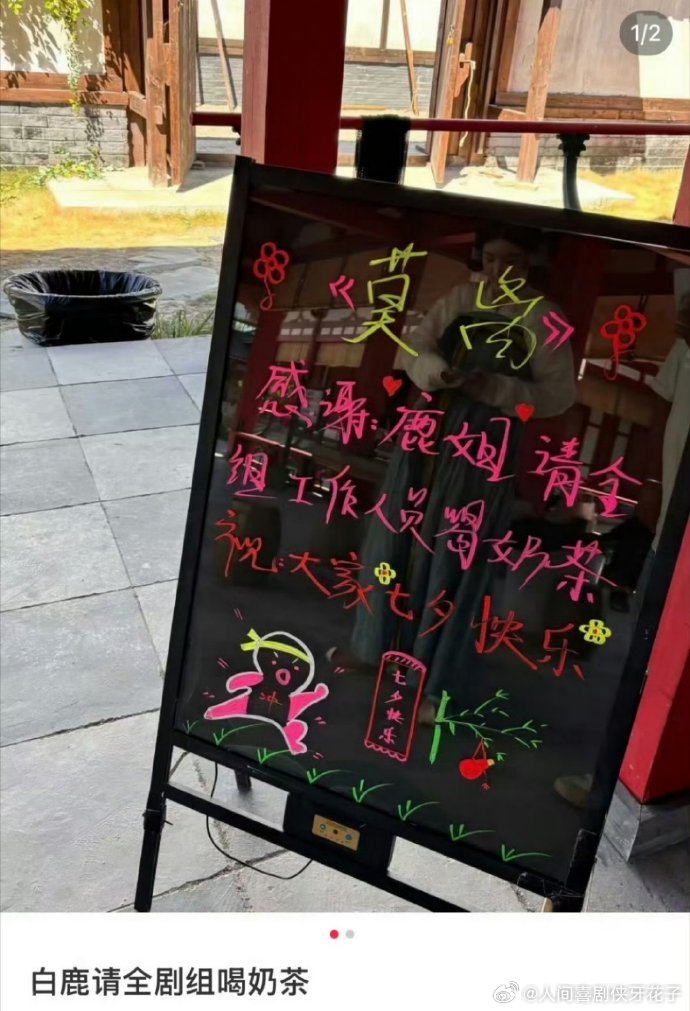 1/2
《莫离》
感谢:鹿姐请全
组工作人员喝奶茶
祝:大家七夕快乐
冲
七夕快乐
白鹿请全剧组喝奶茶
@人间喜剧侠牙花子